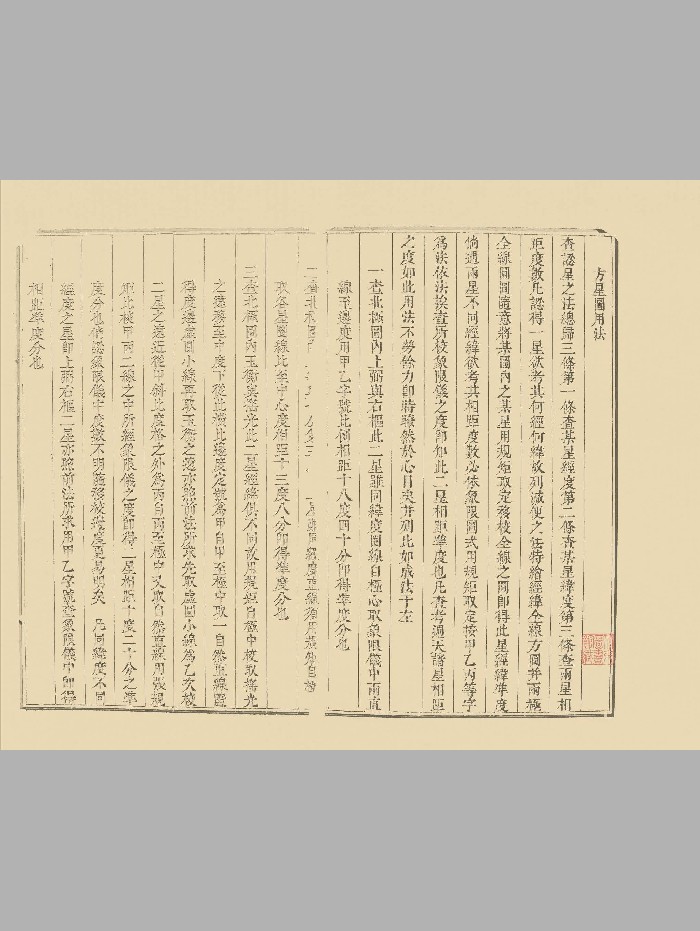 方星圖用法
查認星之法總歸三條第一條查某星經度第二條查某星緯度第三條查兩星相
距度數凡認得一星欲考其何經何緯故列減便之法特繪經緯全線方圖并兩極
全線圓圖隨意將某圖內之某星用規矩取定移校全線之圖即得此星經緯準度
倘遇兩星不同經緯欲考其相距度數必依象限圖式用規矩取定按甲乙丙等字
為法依法挨查所校象限儀之度即知此二星相距準度也凡查考過天諸星相距
之度如此用法不勞餘力即時瞭然於心目矣并列比如成法于左
一查北極圖內上弼與右樞此二星雖同緯度圈線自極心取線眼儀中兩直
線至邊度用甲乙字號比例相距十八度四十分即得準度分也
二查北極圖 經度直線須用規矩自極
取各星圈線比至中心度相距十三度八分即得準度分也
三查北極圖內玉衡與搖光此二星經緯俱不同故用規矩自極中校取搖光
之遠移至中度下從此橫比邊度定號為甲自甲至極中取一自然直線露
得度邊虛圓小線再取玉衡之遠亦照前法所求先取虛圓小線為乙次校
二星之遠近從甲斜比度格之外為丙自丙至極中又取自然直線用張規
矩比校甲丙二線之中所經象限儀之度即得二星相距十度二十分之準
度分也倘認象限儀中度數不明隨移校邊度更易明矣 凡同緯度不同
經度之星即上弼右樞二星亦照前法所求用甲乙字號查象限儀中即得
相距準度分也